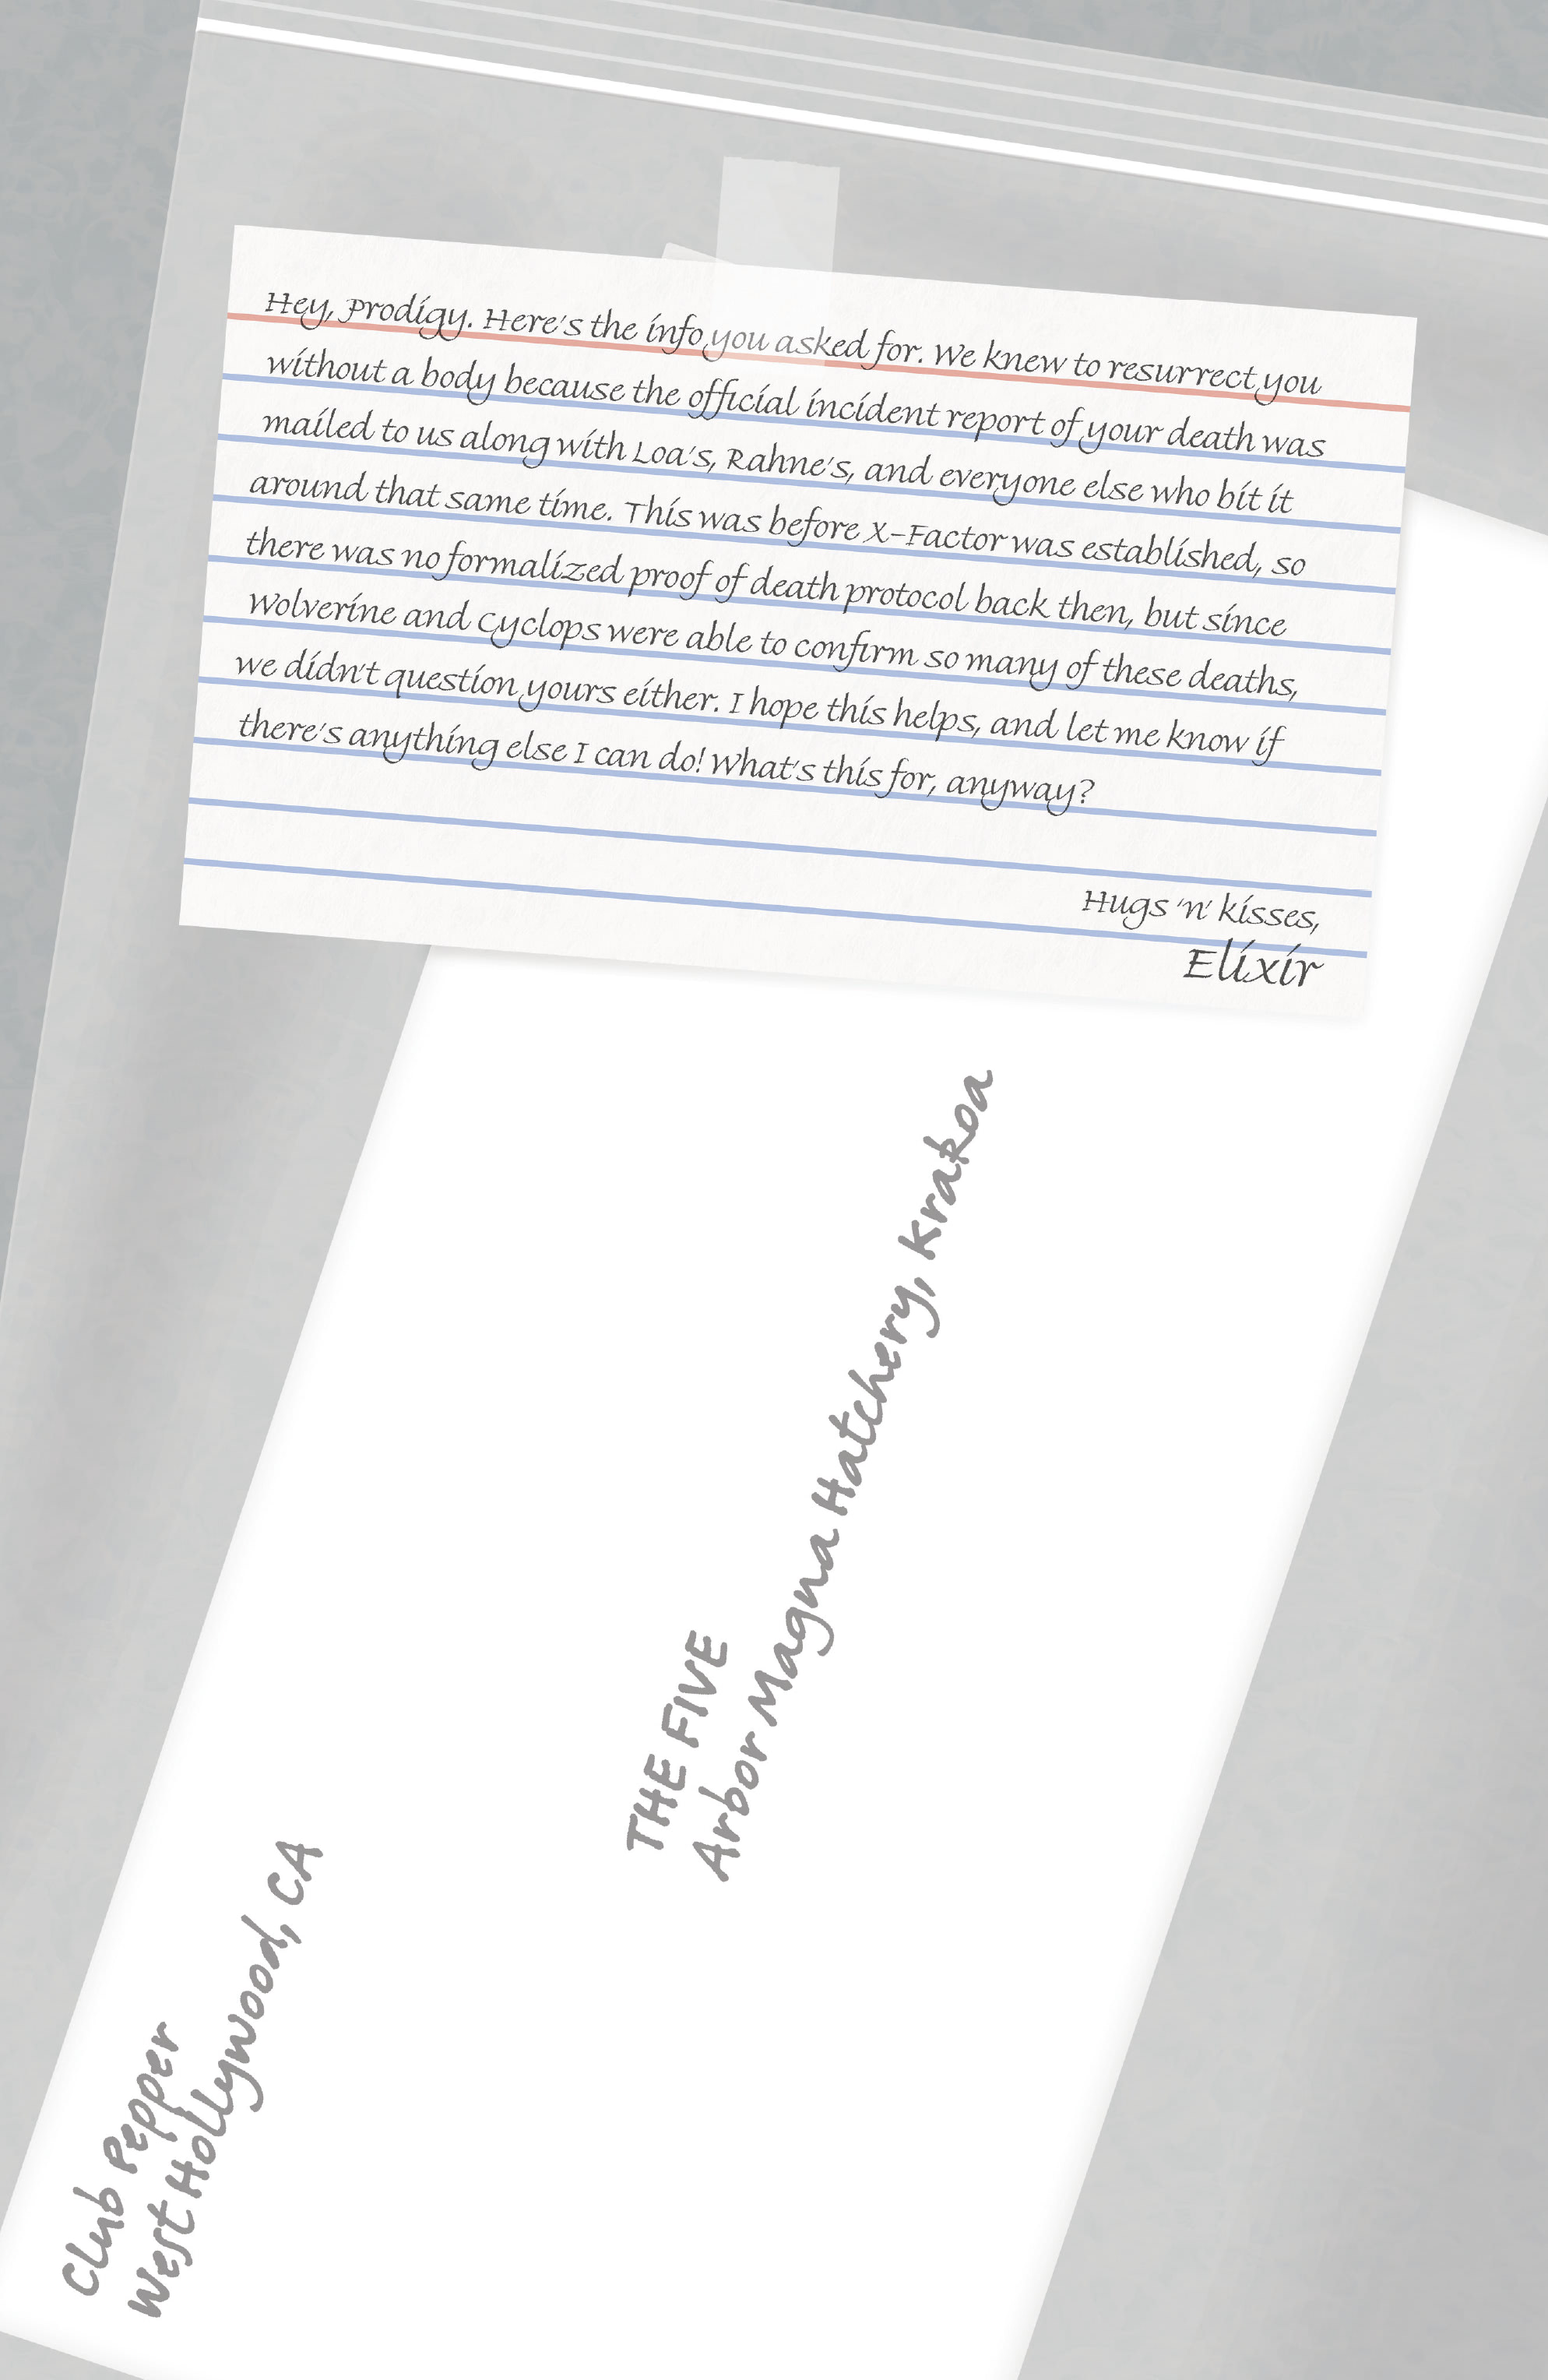 Hey, Prodigy. Here's the info you asked for. We knew to resurrect you
without a body because the official incident report of your death was
mailed to us along with Loa's, Rahne's, and everyone else who bit it
around that same time. This was before X-Factor was established, so
there was no formalized proof of death protocol back then, but since
Wolverine and Cyclops were able to confirm so many of these deaths,
we didn't question yours either. I hope this helps, and let me know if
there's anything else I can do! What's this for, anyway?
Hugs 'n' kisses,
Elixir
Club Pepper
West Hollywood, CA
THE FIVE
Arbor Magna Hatchery, Krakoa